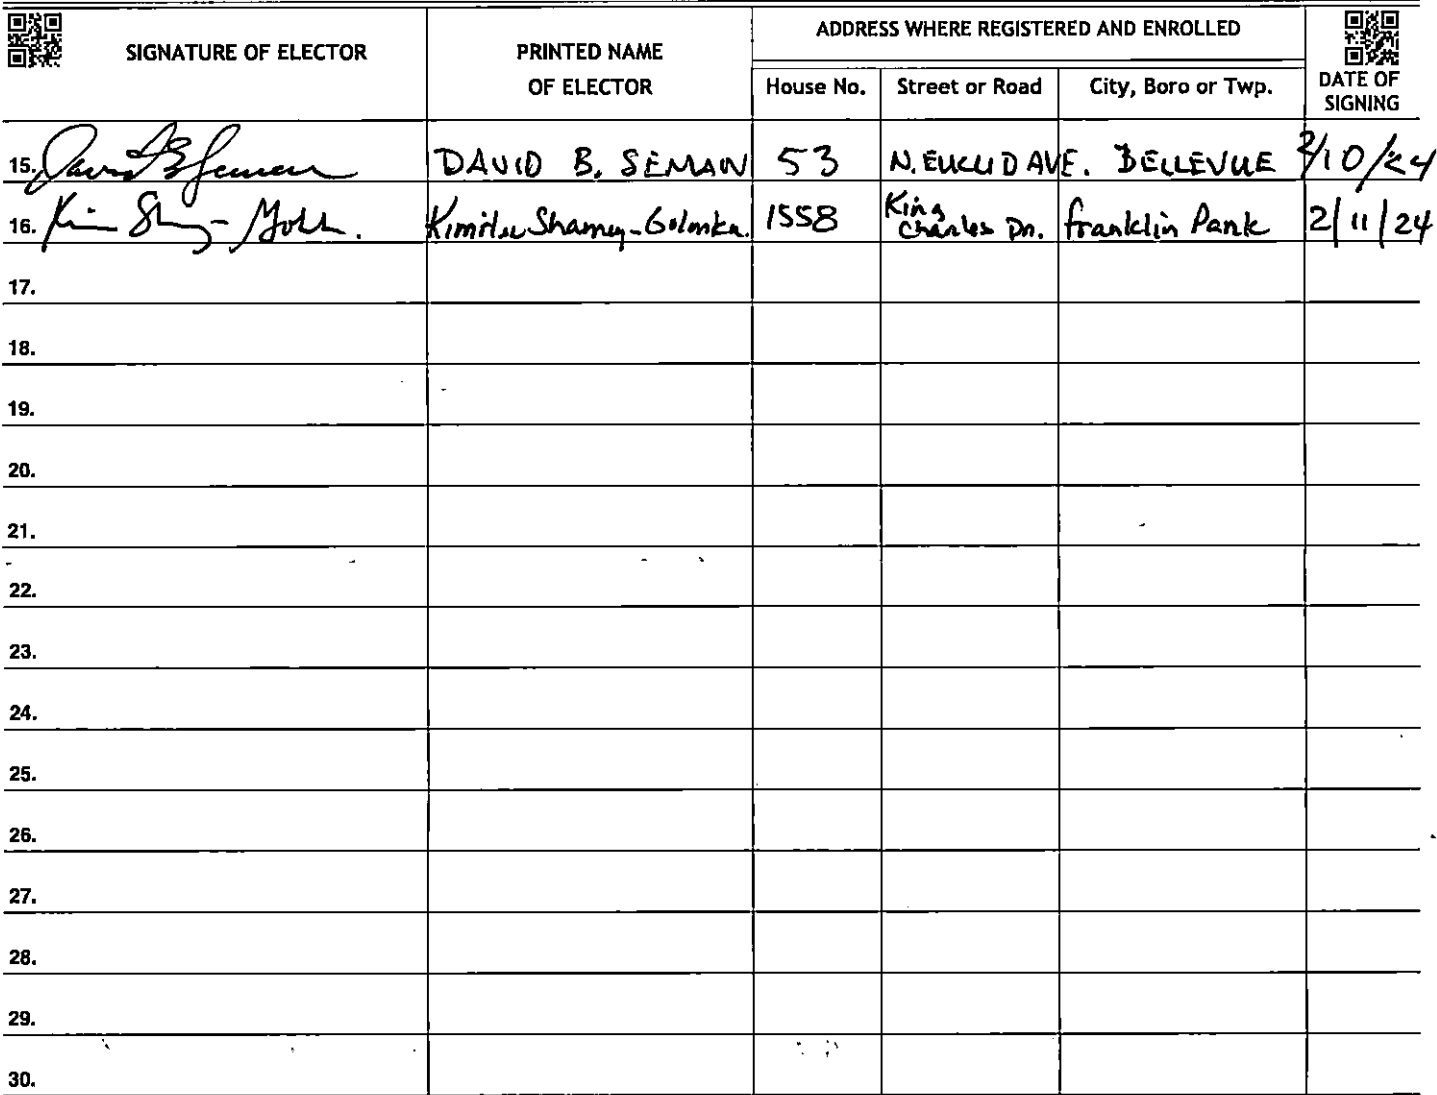 SIGNATURE OF ELECTOR
PRINTED NAME
OF ELECTOR
ADDRESS WHERE REGISTERED AND ENROLLED
House No. Street or Road City, Boro or Twp.
DATE OF
SIGNING
15. DAVID B. SEMAN 53 N. EUCLID AVE. BELLEVUE 2/10/24
16. 1558 King
Charles Dr. Franklin Park 2/11/24
17.
18.
19.
20.
21.
22.
23.
24.
25.
26.
27.
28.
29.
30.